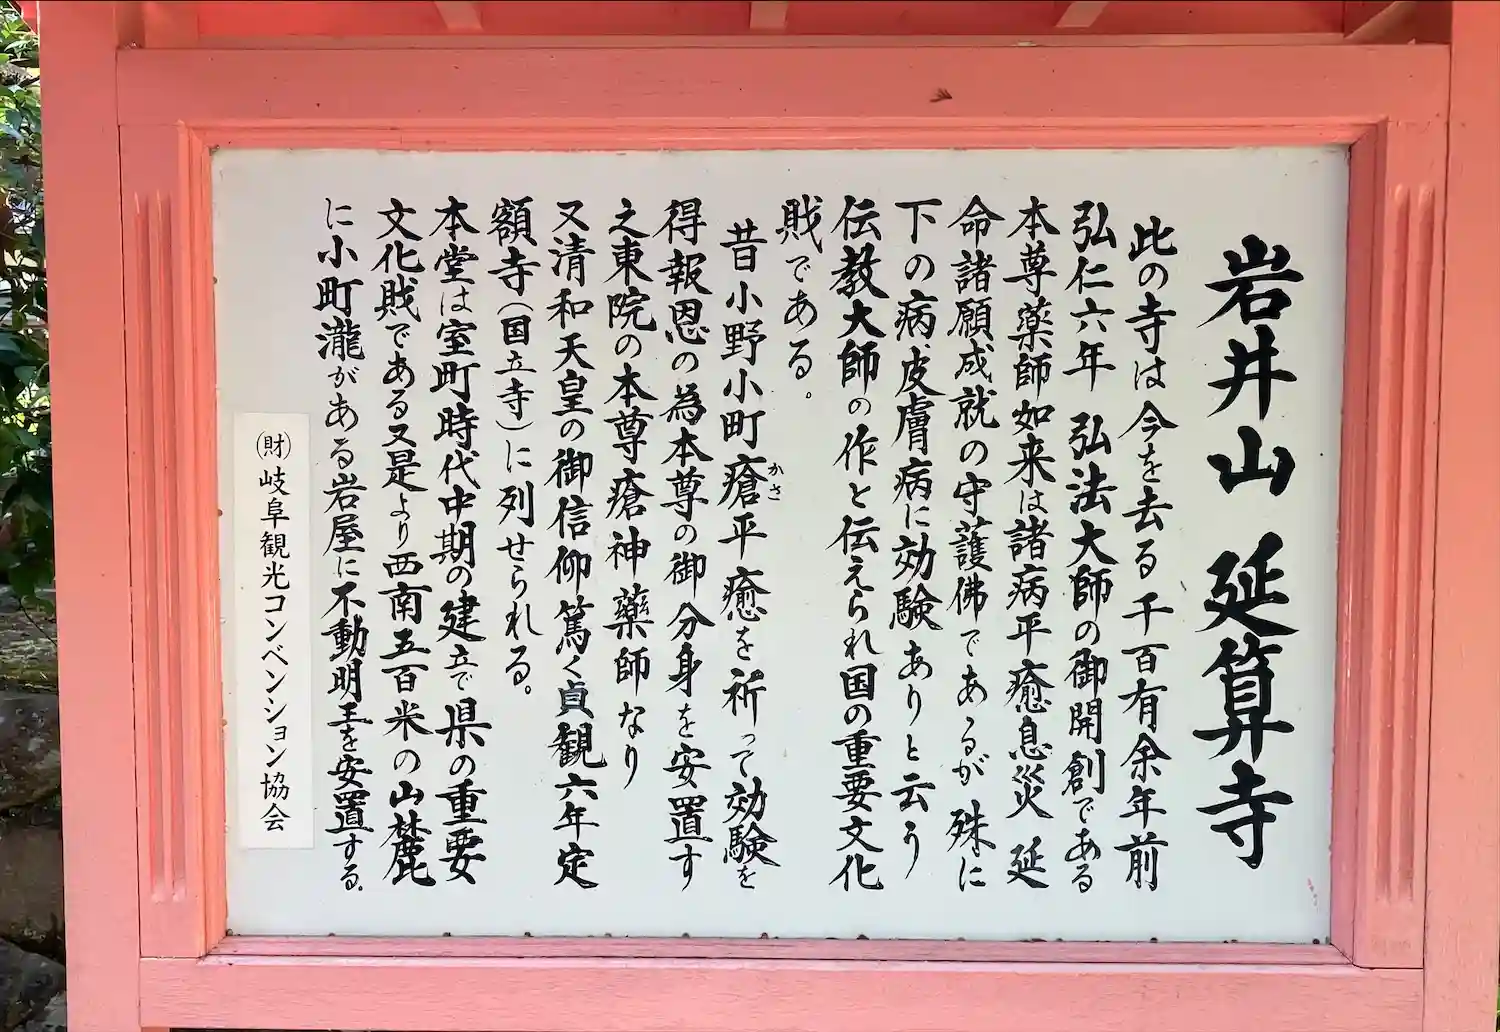 岩井山 延算寺
此の寺は今を去る千百有余年前
弘仁六年 弘法大師の御開創である
本尊薬師如来は諸病平癒息災 延
命諸願成就の守護佛であるが 殊に
下の病、皮膚病に効験ありと云う
伝教大師の作と伝えられ国の重要文化
財である。
昔小野小町瘡平癒を祈って効験を
かさ
得報恩の為本尊の御分身を安置す
之東院の本尊瘡神薬師なり
又清和天皇の御信仰篤く貞観六年定
額寺(国立寺)に列せられる。
本堂は室町時代中期の建立で県の重要
文化財である又是より西南五百米の山麓
に小町瀧がある岩屋に不動明王を安置する。
(財)岐阜観光コンベンション協会